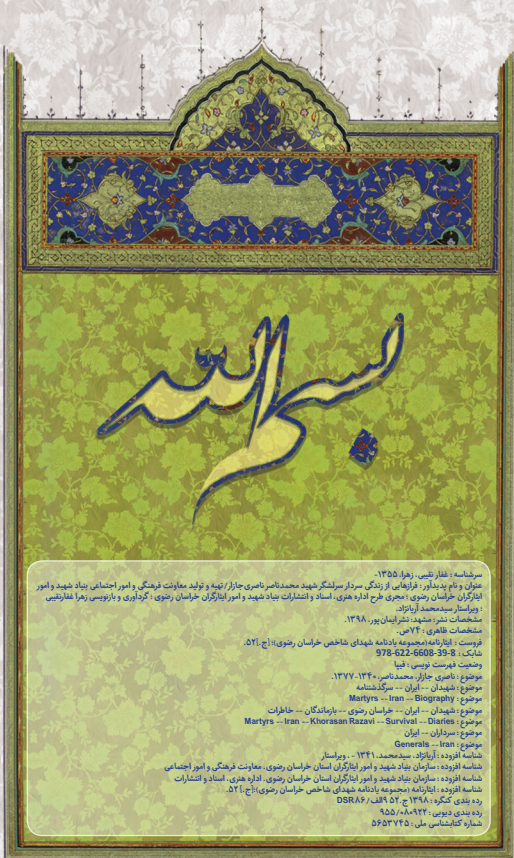 بسم الله
سرشناسه : غفار نقیبی، زهرا، ۱۳۵۵-
عنوان و نام پدیدآور : فرازهایی از زندگی سردار سرلشگر شهید محمدناصر ناصری‌جازار/ تهیه و تولید معاونت فرهنگی و امور اجتماعی بنیاد شهید و امور
ایثارگران خراسان رضوی ؛ مجری طرح اداره هنری، اسناد و انتشارات بنیاد شهید و امور ایثارگران خراسان رضوی ؛ گردآوری و بازنویسی زهرا غفارنقیبی
؛ ویراستار سیدمحمد آریانژاد.
مشخصات نشر: مشهد: نشر ایمان‌پور، ۱۳۹۸.
مشخصات ظاهری : ۷۴ص.
فروست : ایثارنامه(مجموعه یادنامه شهدای شاخص خراسان رضوی)؛ [ج.]۵۲.
شابک : 978-622-6608-39-8
وضعیت فهرست نویسی : فیپا
موضوع : ناصری جازار، محمدناصر، ۱۳۴۰-۱۳۷۷.
موضوع : شهیدان -- ایران -- سرگذشتنامه
موضوع : Martyrs -- Iran -- Biography
موضوع : شهیدان -- ایران -- خراسان رضوی -- بازماندگان -- خاطرات
موضوع : Martyrs -- Iran -- Khorasan Razavi -- Survival -- Diaries
موضوع : سرداران -- ایران
موضوع : Generals -- Iran
شناسه افزوده : آریانژاد، سیدمحمد، ۱۳۴۱ - ، ویراستار
شناسه افزوده : سازمان بنیاد شهید و امور ایثارگران استان خراسان رضوی. معاونت فرهنگی و امور اجتماعی
شناسه افزوده : سازمان بنیاد شهید و امور ایثارگران استان خراسان رضوی. اداره هنری، اسناد و انتشارات
شناسه افزوده : ایثارنامه (مجموعه یادنامه شهدای شاخص خراسان رضوی)؛[ج.] ۵۲.
رده بندی کنگره : ۱۳۹۸ ج.۵۲ ۹الف/ DSR۸۶
رده بندی دیویی : ۹۵۵/۰۸۰۹۲۲
شماره کتابشناسی ملی : ۵۶۵۳۷۴۵